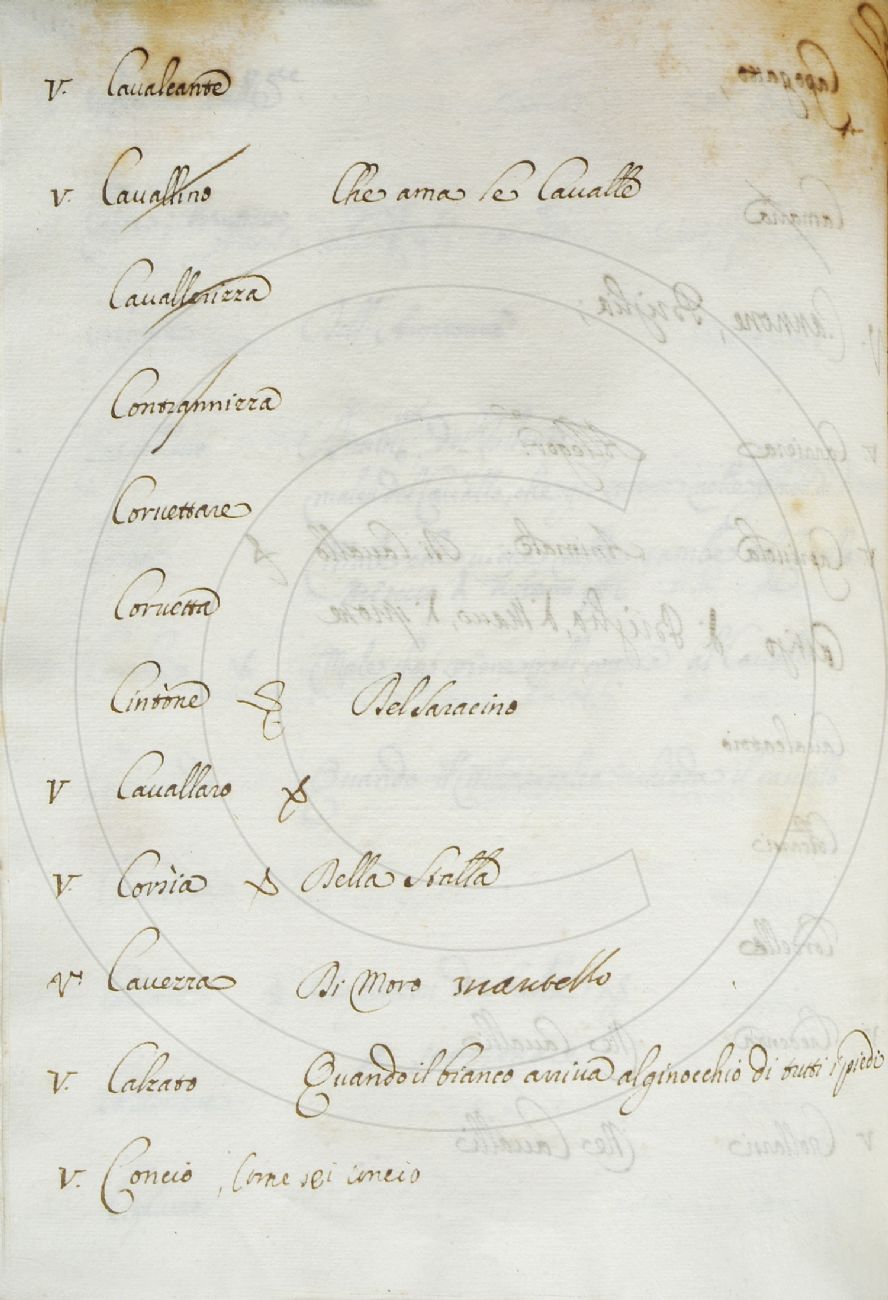 V. Caualcante
V. Cavallino Che ama le Cavalle
Cavallerizza
Contrannizza
Coruettare
Coruetta
Cintone Del Saracino
V Cauallaro
V. Corsia Della Stalla
V. Cauezza Di Moro mantello
V. Calzato Quando il bianco arriva al ginocchio di tutti i piedi
V. Concio, Come sei concio